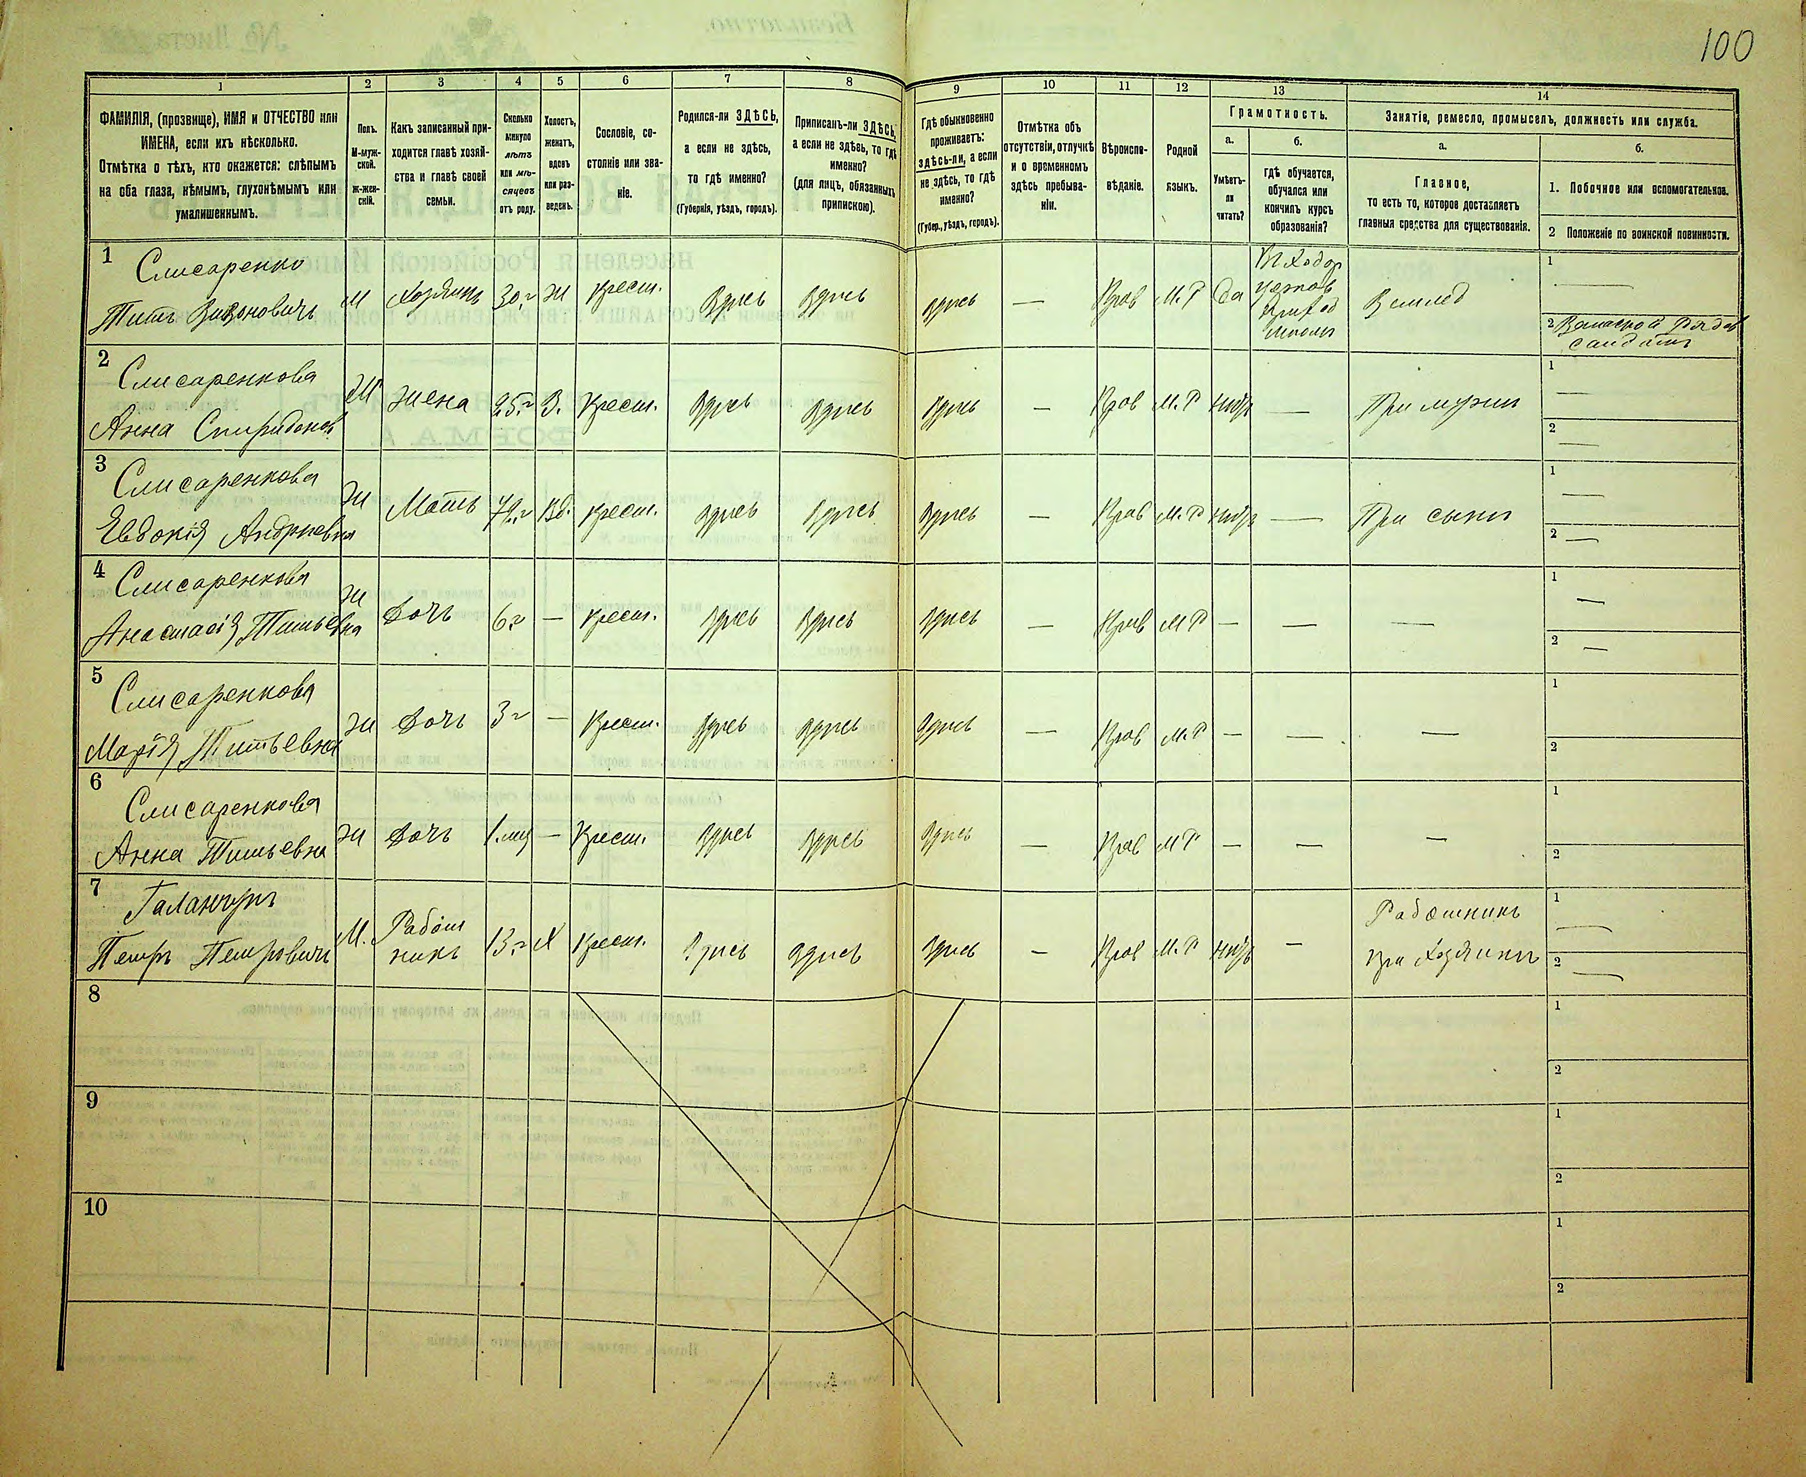 100
1
2
3
4
5
6
7
8
9
10
11
12
13
14
ФАМИЛІЯ, (прозвище), ИМЯ и ОТЧЕСТВО или
ИМЕНА, если ихъ нѣсколько.
Отмѣтка о тѣхъ, кто окажется: слѣпымъ
на оба глаза, нѣмымъ, глухонѣмымъ или
умалишеннымъ.
Полъ.
М-муж-
ской.
Ж-жен-
скій.
Какъ записанный при-
ходится главѣ хозяй-
ства и главѣ своей
семьи.
Сколько
минуло
лѣтъ
или мѣ-
сяцевъ
отъ роду.
Холостъ,
женатъ,
вдовъ
или раз-
веденъ.
Сословіе, со-
стояніе или зва-
ніе.
Родился-ли ЗДѢСЬ,
а если не здѣсь,
то гдѣ именно?
(Губернія, уѣздъ, городъ).
Приписанъ-ли ЗДѢСЬ,
а если не здѣсь, то гдѣ
именно?
(для лицъ, обязанныхъ
припискою).
Гдѣ обыкновенно
проживаетъ:
здѣсь-ли, а если
не здѣсь, то гдѣ
именно?
(Губер., уѣздъ, городъ).
Отмѣтка объ
отсутствіи, отлучкѣ
и о временномъ
здѣсь пребыва-
ніи.
Вѣроиспо-
вѣданіе.
Родной
языкъ.
Грамотность.
а.
б.
Умѣетъ-
ли
читать?
гдѣ обучается,
обучался или
кончилъ курсъ
образованія?
Занятіе, ремесло, промыселъ, должность или служба.
а.
б.
Главное,
то есть то, которое доставляетъ
главныя средства для существованія.
1. Побочное или вспомогательное.
2 Положеніе по воинской повинности.
1
Слисаренко
Титъ
М Хозяинъ 30 г Ж Крест. Здесь Здесь Здесь — Прав М.Р Да
Школы
1 —
2
2
Слисаренкова
Анна Спиридонов
Ж Жена 25 г З. Крест. Здесь Здесь Здесь — Прав М.Р — При мужи
1 —
2 —
3
Слисаренкова
Евдокія Андріевна
Ж Мать Вд. Крест. Здесь Здесь Здесь — Прав М.Р — При сыни
1 —
2 —
4
Слисаренкова
Анастасія Титьевна
Ж Дочь 6 г — Крест. Здесь Здесь Здесь — Прав М Р — — —
1 —
2 —
5
Слисаренкова
Марія Титьевна
Ж Дочь 3 г — Крест. Здесь Здесь Здесь — Прав М.Р — — —
1
2
6
Слисаренкова
Анна Титьевна
Ж Дочь — Крест. Здесь Здесь Здесь — Прав М Р — — —
1
2
7
Петръ Петровичъ
М. Работ
никъ 13 г Х Крест. Здесь Здесь Здесь — Прав М.Р —
Работникъ
при Хозяини
1 —
2 —
8
1
2
9
1
2
10
1
2